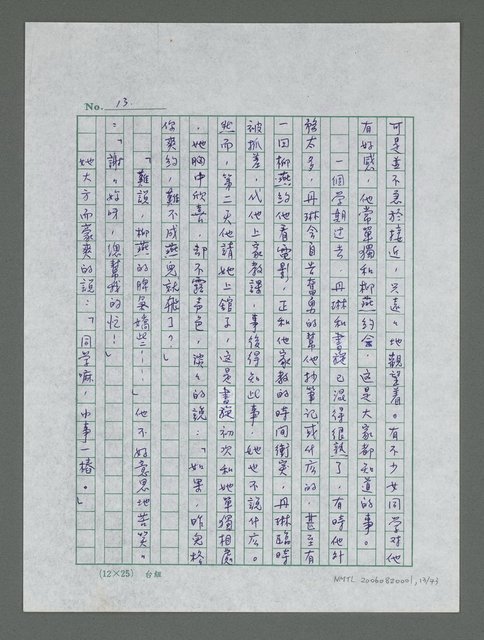 No. 13
可是並不急於接近，只遠々地觀望着。有不少女同学对他
有好感，他常單獨和柳燕約会，這是大家都知道的事。
一個学期过去，丹琳和書旋已混得很熟了，有時他外
務太多，丹琳会自告奮勇的幫他抄筆记或什広的，甚至有
一回柳燕約他看電影，正和他家教的時间衝突，丹琳臨時
被抓差，代他上家教課，事後得知此事，她也不說什広。
然而，第二天他請她上館子，這是書旋初次和她單獨相處
，她胸中欣喜，却不露声色，淡々的說：「如果，昨兒格
你爽約，難不成燕兒就飛了？」
「難說，柳燕的脾氣嬌些！！」他不好意思地苦笑。
：「謝々妳呀，總幫我的忙！」
她大方而豪爽的說：「同学嘛，小事一樁。」
(12×25) 台組
NMTL 20060820001, 13/43